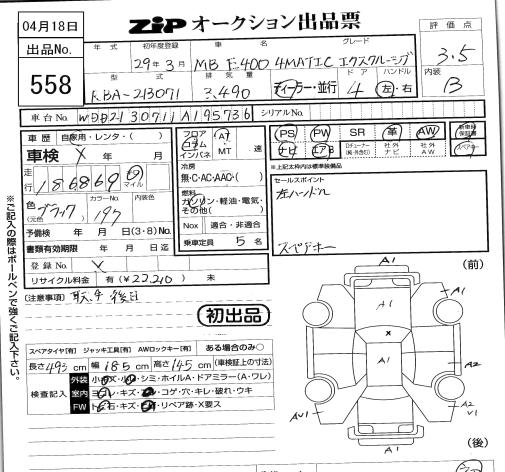 04月18日
ZIP オークション出品票
評価点
出品No.
年式
初年度登録
車名
グレード
3.5
558
29年3月
MB E-400 4MATIC エクスクルーシブ
内装
型式
排気量
ドア
ハンドル
B
RBA-213071
3,490
ディーラー・並行
4
左・右
車台No.
WDD2130711A195736
シリアルNo.
車歴
自家用・レンタ・( )
フロア
コラム
インパネ
AT
MT
速
PS
PW
SR
革
AW
新車時保証書
車検
X
年
月
ナビ
エアB
Dチューナー
社外ナビ
社外AW
スペアキー
走行
186869
マイル
冷房
無・C・AC・AAC・( )
※上記太枠内は標準装備品
セールスポイント
燃料
ガソリン・軽油・電気・
その他( )
左ハンドル
色
(元色)
ブラック
カラーNo.
197
内装色
予備検
年
月
日(3・8)No.
Nox
適合・非適合
書類有効期限
年
月
日
乗車定員
5名
スペアキー
登録No.
X
リサイクル料金
有(¥22,210)
未
注意事項)
取,キ後日
初出品
(前)
スペアタイヤ[有]
ジャッキ工具[有]
AWロックキー[有]
ある場合のみ○
長さ493cm
幅185cm
高さ145cm
(車検証上の寸法)
検査記入
外装
小キズ・小凹・シミ・ホイルA・ドアミラー(A・ワレ)
室内
ヨゴレ・キズ・スレ・コゲ・穴・キレ・破れ・ウキ
FW
トビ石・キズ・リペア跡・X要ス
A1
A1
X
A1
A2
AV1
A2
V1
A1
(後)
※ご記入の際はボールペンで強くご記入下さい。